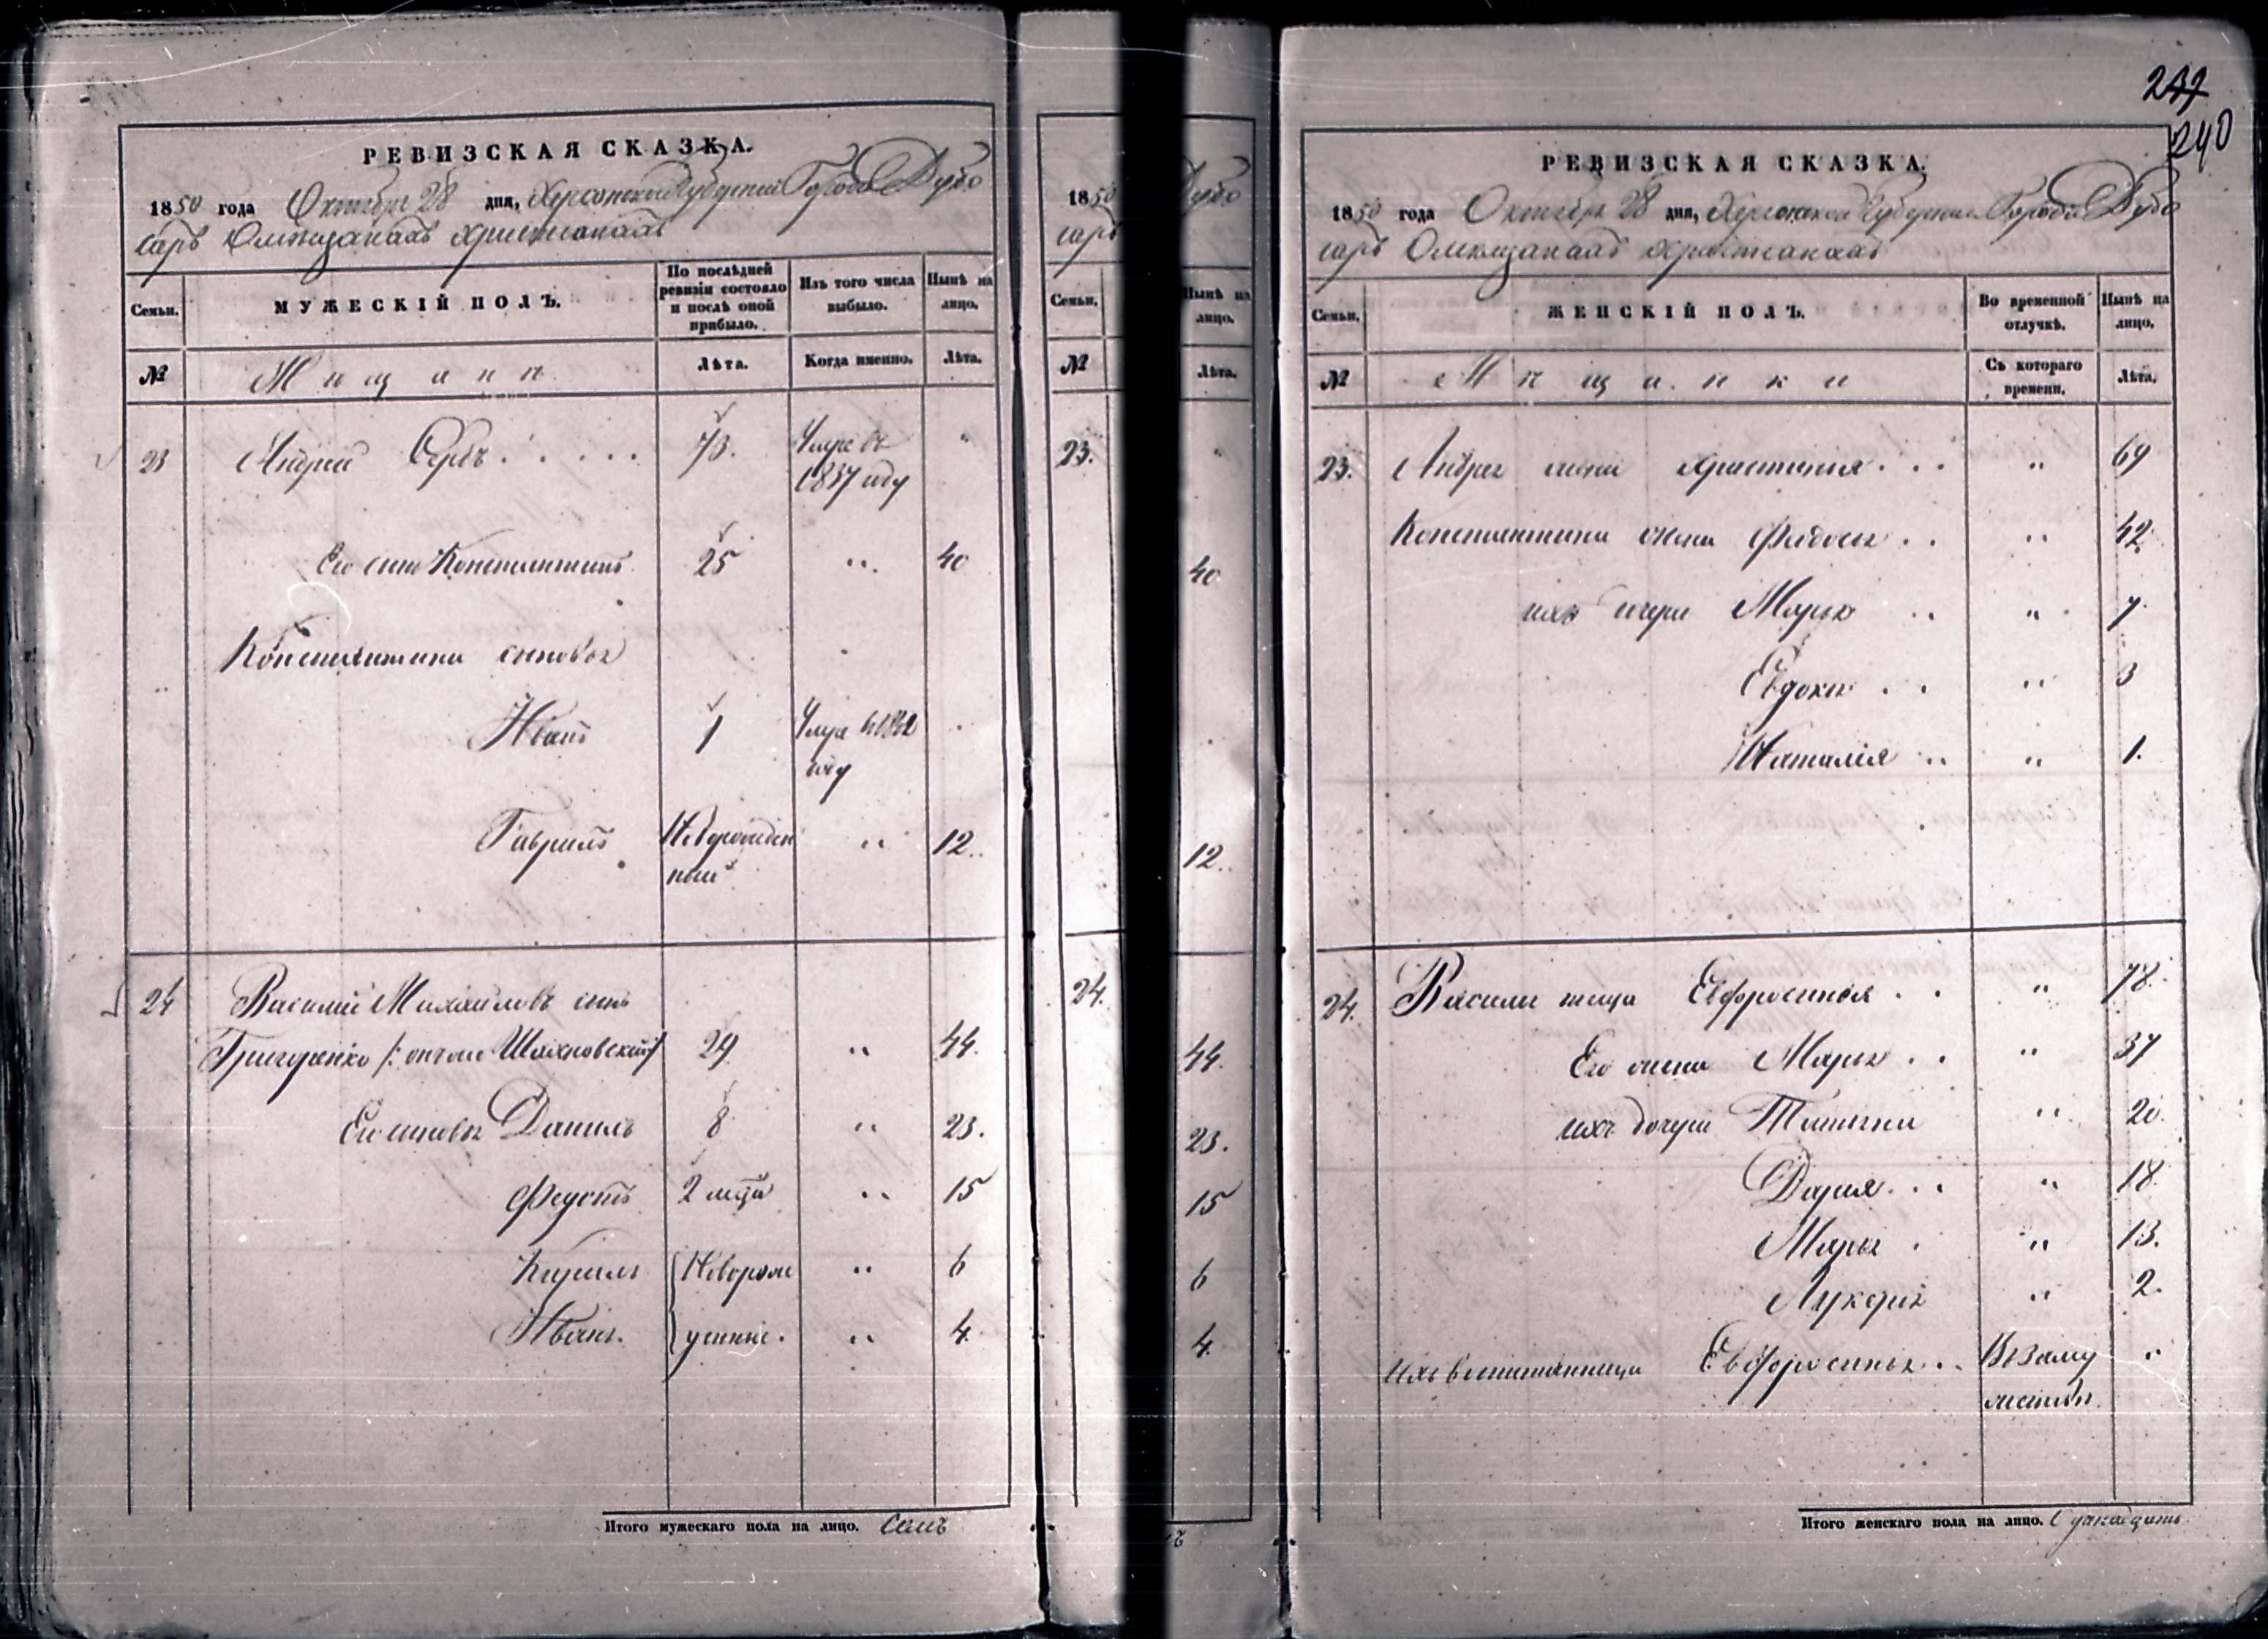 РЕВИЗСКАЯ СКАЗКА.
1850 года Октября 28 дня, Херсонской Губернии Города Дубо
саръ Омещанахъ христианахъ
Семьи.
МУЖЕСКІЙ ПОЛЪ.
По послѣдней ревизіи состояло и послѣ оной прибыло.
Изъ того числа выбыло.
Нынѣ на лицо.
№
Мещане
Лѣта.
Когда именно.
Лѣта.
23 Андрей 73. Умре въ "
1837 году
Его сынъ Константинъ 25 " 40
Константина сыновья
Иванъ 1 Умре
году
Гаврилъ Новорожден " 12.
ный
24 Василий Михайловъ сынъ
Григоренко /: онъже Шахновский/ 29 " 44.
Его сыновья Данилъ 8 " 23.
Федотъ 2 мѣца " 15
Кирилъ Новорож " 6
Иванъ. денные. " 4.
Итого мужескаго пола на лицо. Семь
1850
саръ
Семьи.
№
23.
24.
Дубо
Нынѣ на лицо.
Лѣта.
"
40
12.
44.
23.
15
6
4.
ъ
237
240
РЕВИЗСКАЯ СКАЗКА.
1850 года Октября 28 дня, Херсонской Губернии Города Дубо
саръ Омещанахъ христианахъ
Семьи.
ЖЕНСКІЙ ПОЛЪ.
Во временной отлучкѣ.
Нынѣ на лицо.
№
Мещанки
Съ котораго времени.
Лѣта.
23. Андрея жена Христиния... " 69
Константина жена Федосья.. " 42
ихъ дчери Марья.. " 7.
Евдокия.. " 3
Наталія.. " 1.
24. Василия теща Ефросиния.. " 78.
Его жена Марья.. " 37
ихъ дочери Татьяна " 20.
Дария... " 18.
Марья. " 13.
Лукерья " 2.
Ихъ воспитанница Евфросинья.. Въ заму "
жествѣ
Итого женскаго пола на лицо. Одинадцать